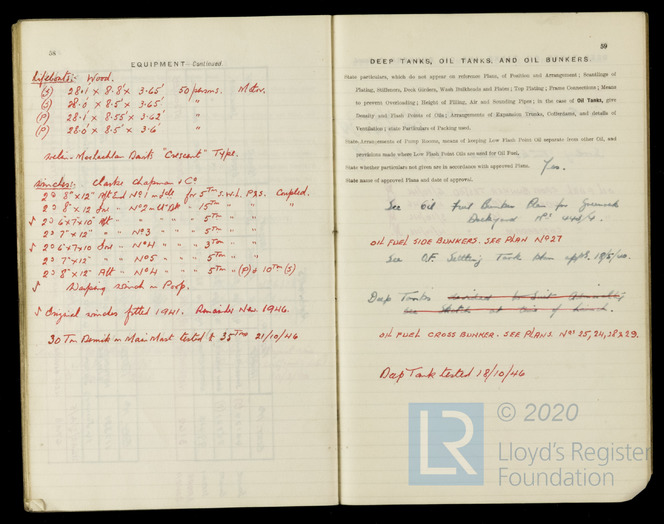 58
EQUIPMENT—Continued.
Lifeboats:- Wood.
(S) 28·1' × 8·8' × 3·65' 50 persons. Motor.
(S) 28·0' × 8·5' × 3·65' "
(P) 28·1' × 8·55' × 3·62' "
(P) 28·0' × 8·5' × 3·6' "
Welin-Maclachlan Davits "Crescent" Type.
Winches:- Clarke Chapman & Co
2 @ 8" × 12" Aft End No 1 for 5 Ton S.W.L. P&S. Coupled.
2 @ 8" × 12" " No 2 " 15 Ton " " "
√ 2 @ 6×7×10" Aft " " " " 5 Ton " "
2 @ 7" × 12" " " No 3 " " 5 Ton " "
√ 2 @ 6×7×10 " No 4 " " 3 Ton " "
2 @ 7" × 12" " " No 5 " " 5 Ton " "
2 @ 8" × 12" Aft " No 4 " " 5 Ton " (P) & 10 Ton (S)
√ Warping Winch on Poop.
√ Original winches fitted 1941. Remainder Nov. 1946.
30 Ton Derrick on Main Mast tested to 35 Tons 21/10/46
59
DEEP TANKS, OIL TANKS, AND OIL BUNKERS.
State particulars, which do not appear on reference Plans, of Position and Arrangement; Scantlings of
Plating, Stiffeners, Deck Girders, Wash Bulkheads and Plates; Top Plating; Frame Connections; Means
to prevent Overloading; Height of Filling, Air and Sounding Pipes; in the case of Oil Tanks, give
Density and Flash Points of Oils; Arrangements of Expansion Trunks, Cofferdams, and details of
Ventilation; state Particulars of Packing used.
State Arrangements of Pump Rooms, means of keeping Low Flash Point Oil separate from other Oil, and
provisions made where Low Flash Point Oils are used for Oil Fuel.
State whether particulars not given are in accordance with approved Plans. Yes.
State name of approved Plans and date of approval.
See Oil Fuel Bunker Plan for Greenock
Dockyard No
OIL FUEL SIDE BUNKERS. SEE PLAN No 27
See O.F. Settling Tank plan appd.
Deep Tanks
OIL FUEL CROSS BUNKER. SEE PLANS. Nos 25, 24, 28 & 29.
Deep Tank tested 18/10/46
LR
© 2020
Lloyd's Register
Foundation